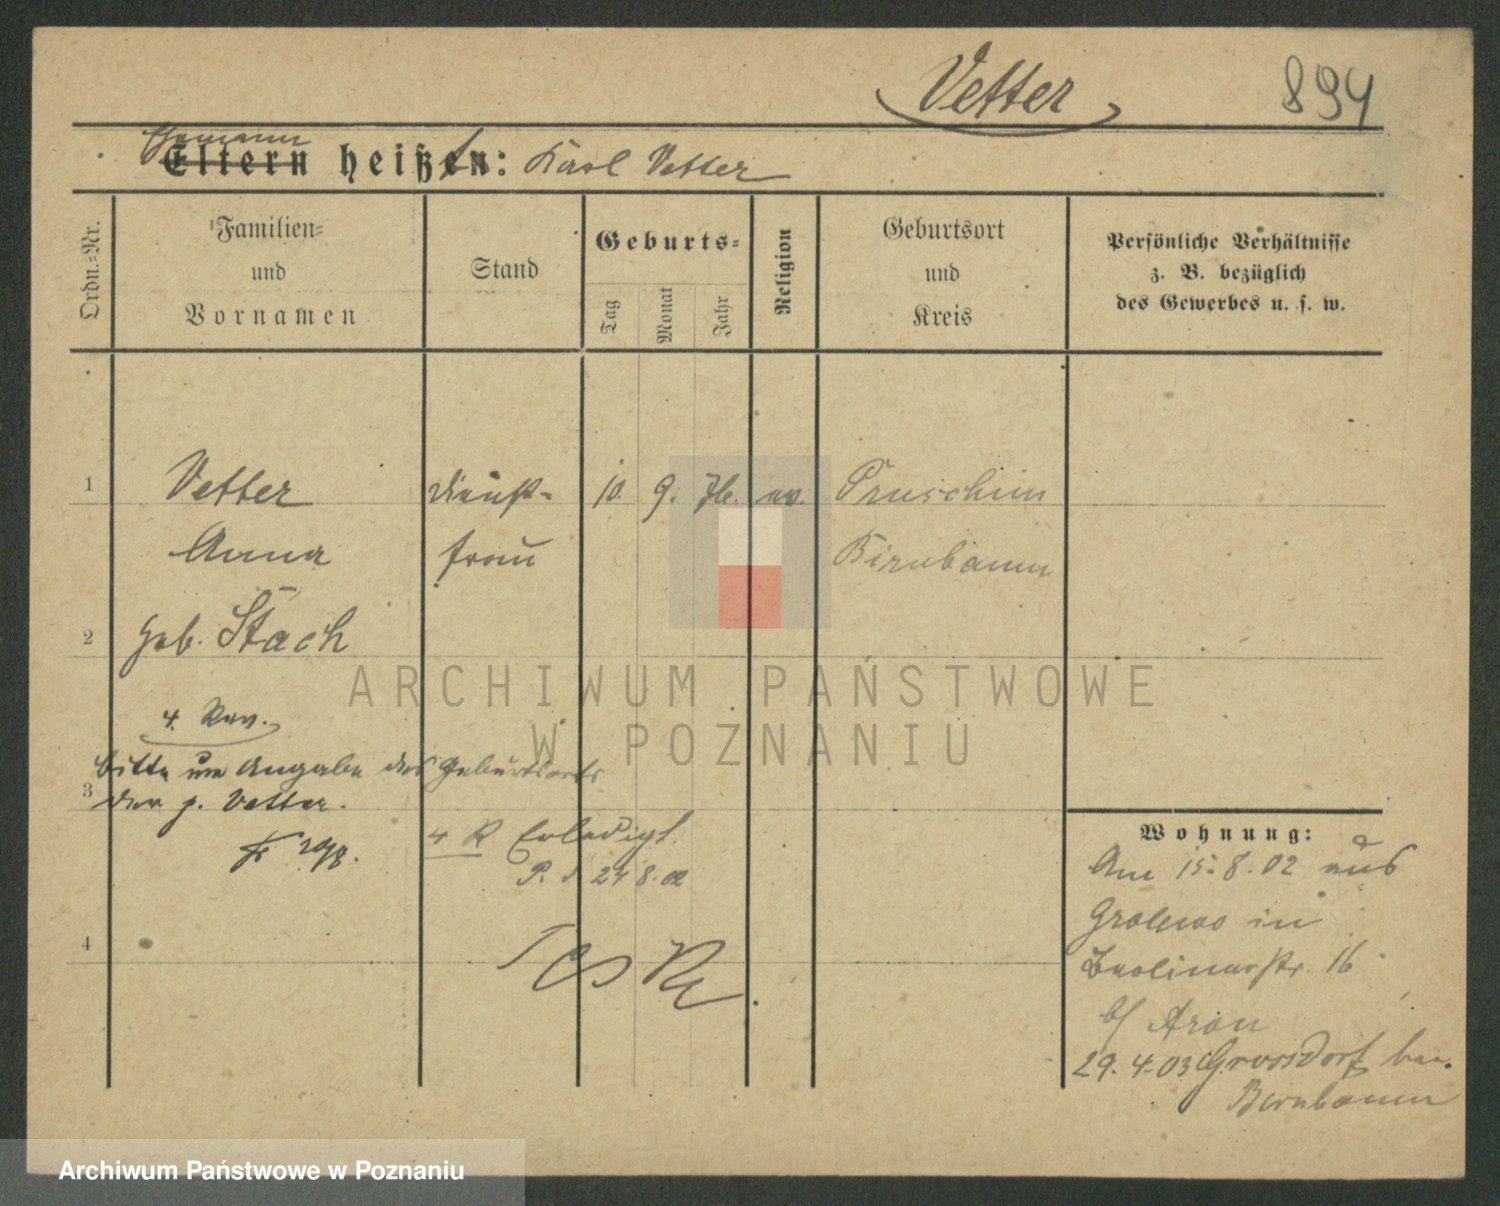 Vetter
894
Ehemann
Eltern heißen: Karl Vetter
Ordn.-Nr.
Familien-
und
Vornamen
Stand
Geburts-
Tag
Monat
Jahr
Religion
Geburtsort
und
Kreis
Persönliche Verhältnisse
z. B. bezüglich
des Gewerbes u. s. w.
1 Vetter Dienst- 10. 9. 76. ev. Pruschim
Anna frau Birnbaum
2 geb. Stach
4. Rev.
bitte um Angabe des Geburtsorts
3 der p. Vetter.
4 R Erledigt.
P. d. 24 8. 02
4
Wohnung:
Am 15.8.02 aus
in
Berlinerstr. 16
b/ Aron
29.4.03 Grossdorf
Birnbaum
ARCHIWUM PAŃSTWOWE
W POZNANIU
Archiwum Państwowe w Poznaniu